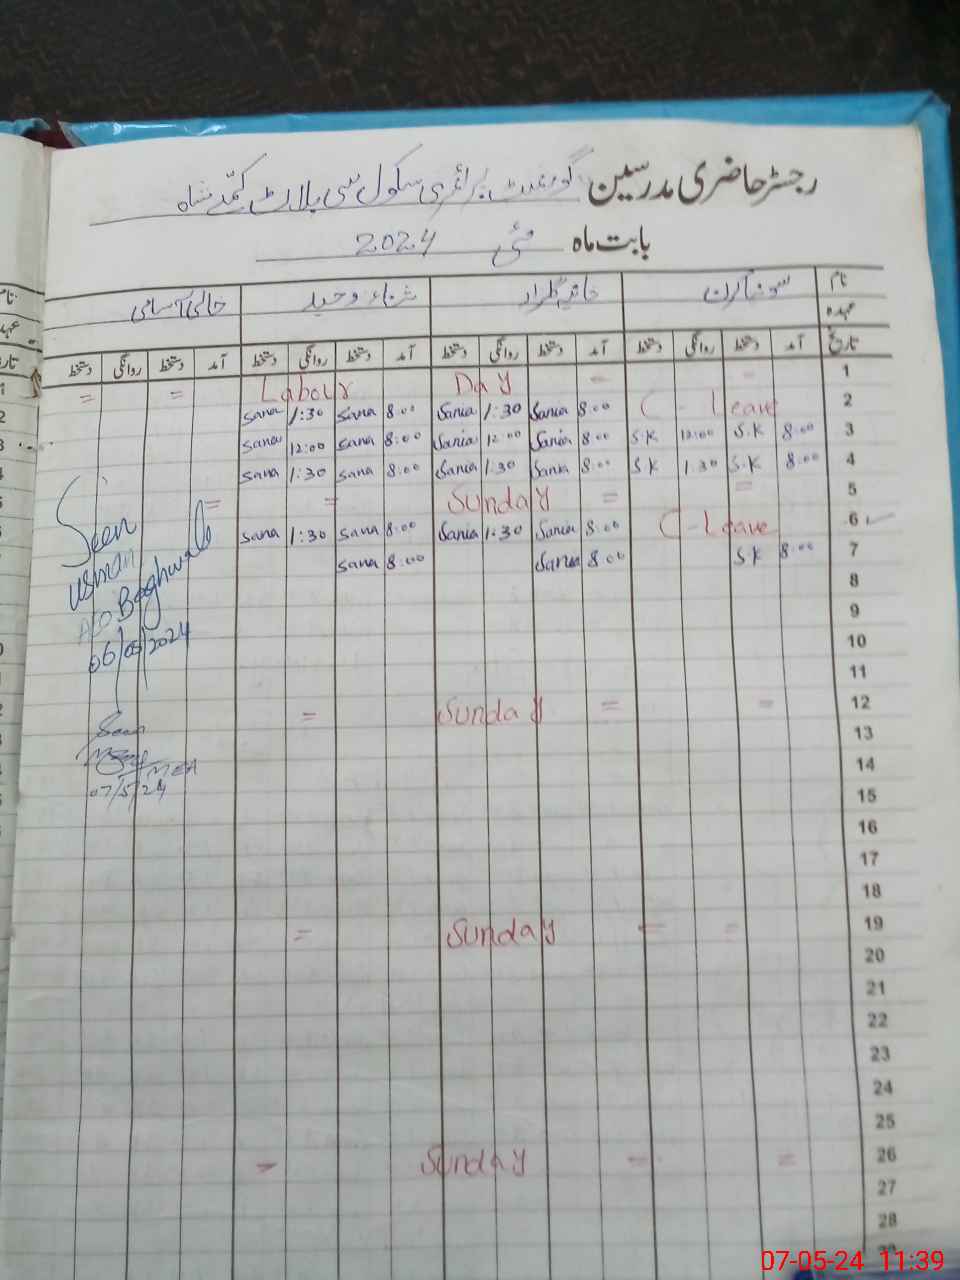 رجسٹر حاضری مدرسین گورنمنٹ پرائمری سکول سی بلاٹ
بابت ماہ مئی 2024
نام
عہدہ
ثناء وحید خالی آسامی
تاریخ آمد دستخط روانگی دستخط آمد دستخط روانگی دستخط آمد دستخط روانگی دستخط آمد دستخط روانگی دستخط
= = Labour Day = = 1
Sana 1:30 Sana 8:00 Sania 1:30 Sania 8:00 C - Leave 2
Sana 12:00 Sana 8:00 Sania 12:00 Sania 8:00 S.K 12:00 S.K 8:00 3
Sana 1:30 Sana 8:00 Sania 1:30 Sania 8:00 S.K 1:30 S.K 8:00 4
= = Sunday = = 5
Sana 1:30 Sana 8:00 Sania 1:30 Sania 8:00 C - Leave 6
Sana 8:00 Sania 8:00 S.K 8:00 7
Seen
Usman
AEO Baghwala
06/05/2024
8
9
10
11
= Sunday = = 12
Seen
MEA
07/5/24
13
14
15
16
17
18
= Sunday = = 19
20
21
22
23
24
25
= Sunday = = 26
27
28
29
07-05-24 11:39